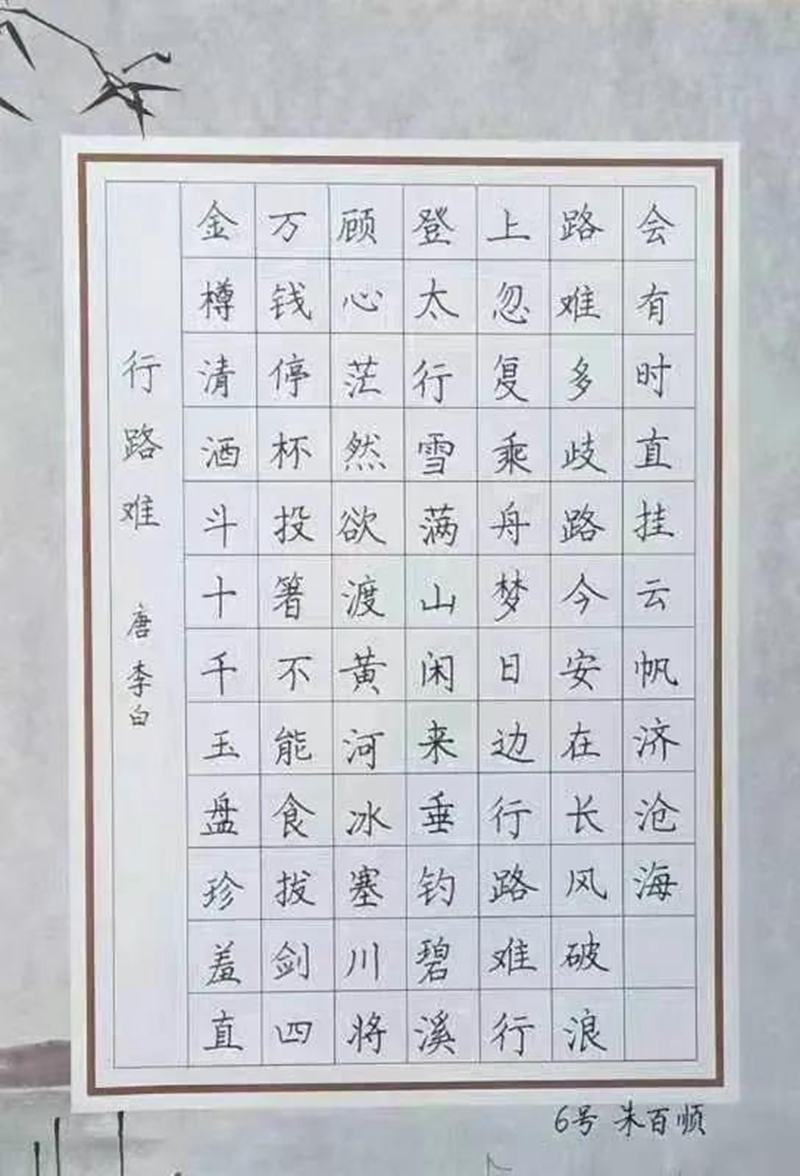 行路难 唐李白
金樽清酒斗十千玉盘珍羞直
万钱停杯投箸不能食拔剑四
顾心茫然欲渡黄河冰塞川将
登太行雪满山闲来垂钓碧溪
上忽复乘舟梦日边行路难行
路难多歧路今安在长风破浪
会有时直挂云帆济沧海
6号 朱百顺